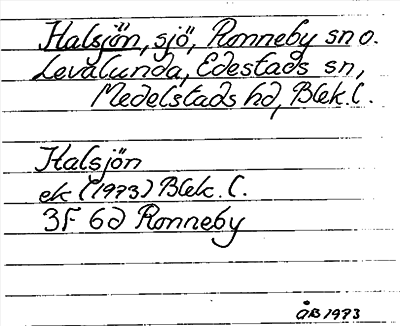 Halsjön, sjö, Ronneby sn o.
Levalunda, Edestads sn,
Medelstads hd, Blek.l.
Halsjön
ek (1973) Blek.l.
3F 6d Ronneby
ÅB 1973